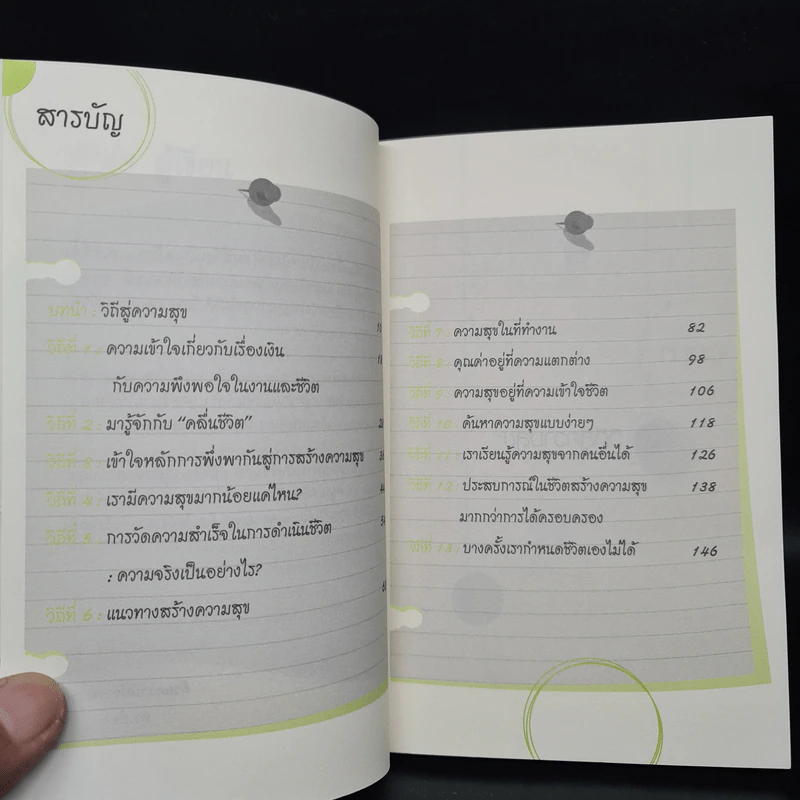 สารบัญ
บทนำ : วิถีสู่ความสุข
วิถีที่ 1 : ความเข้าใจเกี่ยวกับเรื่องเงิน
กับความพึงพอใจในงานและชีวิต
วิถีที่ 2 : มารู้จักกับ “คลื่นชีวิต”
วิถีที่ 3 : เข้าใจหลักการพึ่งพากันสู่การสร้างความสุข
วิถีที่ 4 : เรามีความสุขมากน้อยแค่ไหน?
วิถีที่ 5 : การวัดความสำเร็จในการดำเนินชีวิต
: ความจริงเป็นอย่างไร?
วิถีที่ 6 : แนวทางสร้างความสุข
วิถีที่ 7 : ความสุขในที่ทำงาน 82
วิถีที่ 8 : คุณค่าอยู่ที่ความแตกต่าง 98
วิถีที่ 9 : ความสุขอยู่ที่ความเข้าใจชีวิต 106
วิถีที่ 10 : ค้นหาความสุขแบบง่ายๆ 118
วิถีที่ 11 : เราเรียนรู้ความสุขจากคนอื่นได้ 126
วิถีที่ 12 : ประสบการณ์ในชีวิตสร้างความสุข 138
มากกว่าการได้ครอบครอง
วิถีที่ 13 : บางครั้งเรากำหนดชีวิตเองไม่ได้ 146